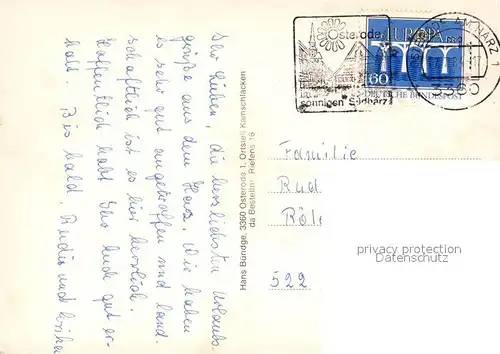 Ihr Lieben, die herzlichsten Urlaubs-
grüße aus dem Harz. Wir haben
es sehr gut angetroffen und land-
schaftlich ist es hier herrlich.
Hoffentlich habt Ihr Euch gut er-
holt. Bis bald,
und
Hans Bündge, 3360 Osterode 1, Ortsteil Kamschlacken
da Bestellnr. Riefens 16
Osterode
sonnigen Südharz
EUROPA
60
DEUTSCHE BUNDESPOST
OSTERODE AM HARZ 1
3360
Familie
Rud
Röl
522
privacy protection
Datenschutz